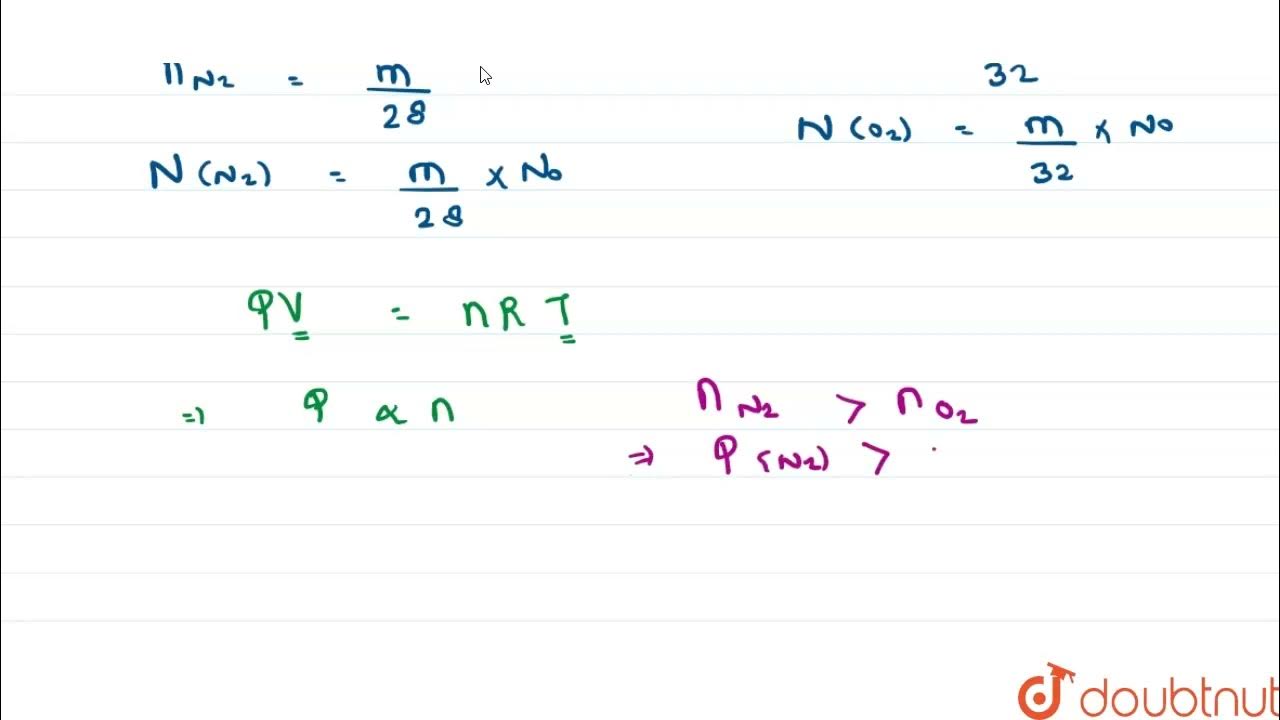 n N2 = m/28
32
N (O2) = m/32 x No
N (N2) = m/28 x No
PV = nRT
=> P ∝ n
n N2 > n O2
=> P (N2) >
doubtnut